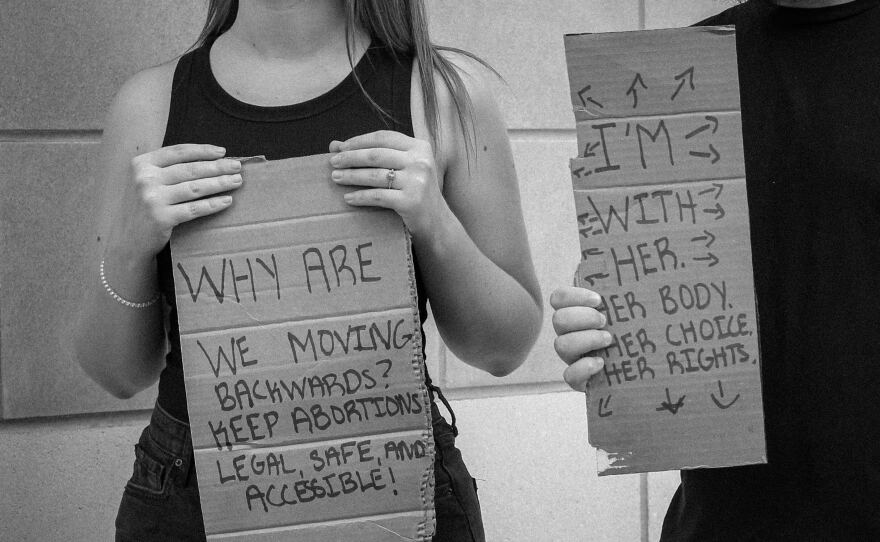 WHY ARE
WE MOVING
BACKWARDS?
KEEP ABORTIONS
LEGAL, SAFE, AND
ACCESSIBLE!
I'M
WITH
HER.
HER BODY.
HER CHOICE.
HER RIGHTS.